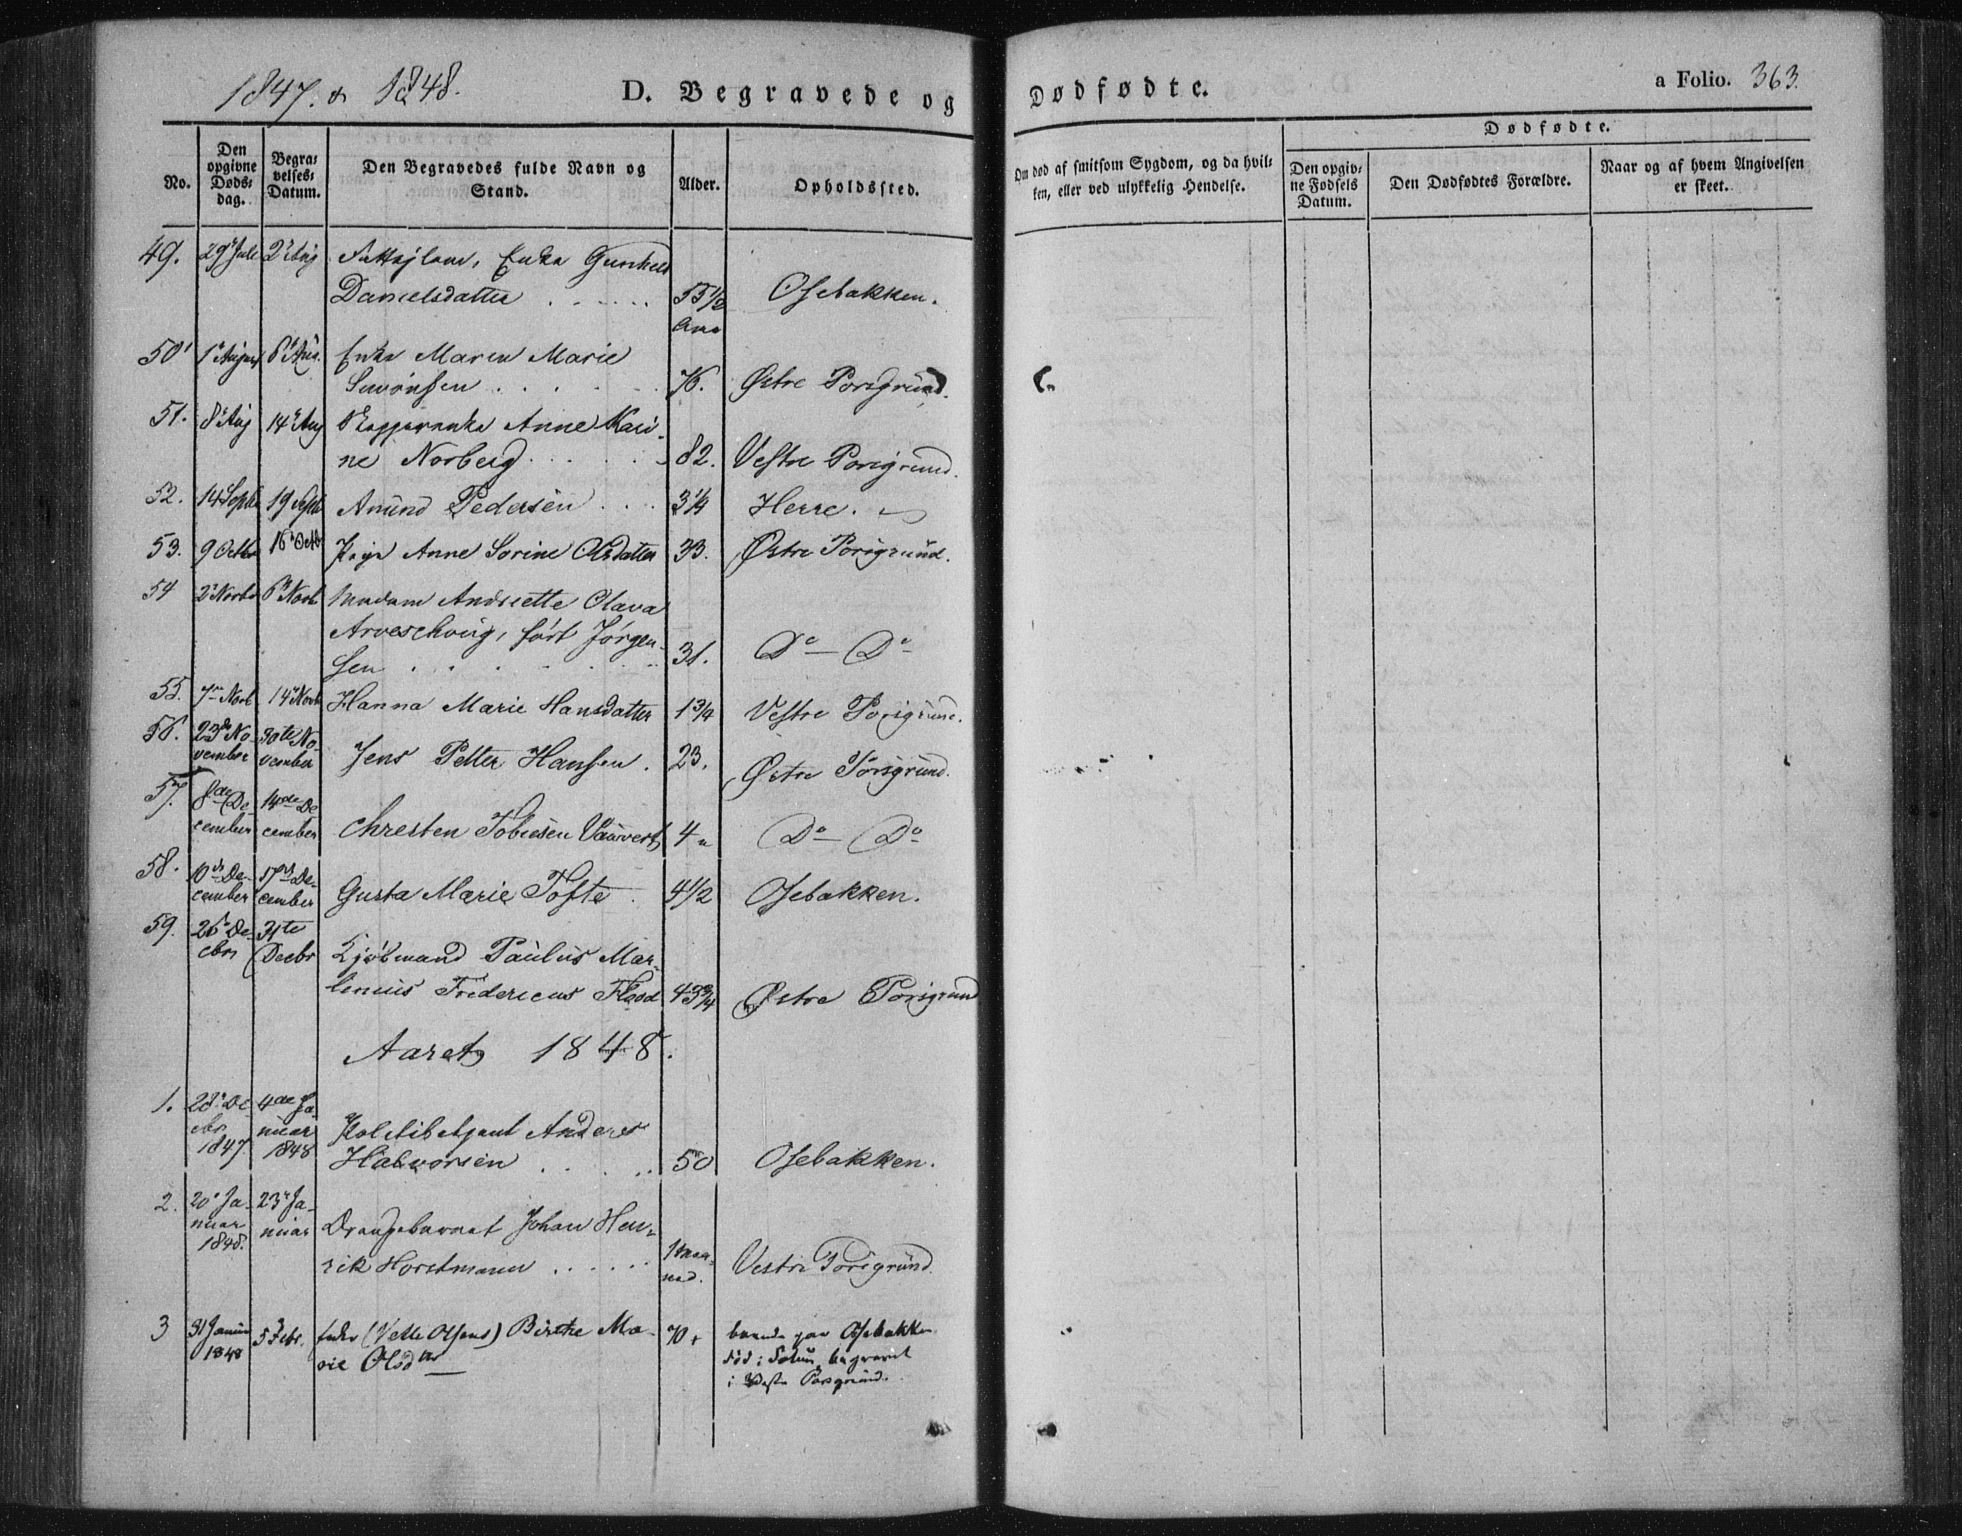 1847. & 1848.
D. Begravede og Dødfødte.
a Folio. 363.
No.
Den opgivne Døds-dag.
Begra-velses-Datum.
Den Begravedes fulde Navn og Stand.
Alder.
Opholdssted.
Om død af smitsom Sygdom, og da hvil-
ken, eller ved ulykkelig Hendelse.
Dødfødte.
Den opgiv-
ne Fødsels
Datum.
Den Dødfødtes Forældre.
Naar og af hvem Angivelsen
er skeet.
49. 29 Juli 2 Aug Enke Gunhild
Danielsdatter 55 1/2 Osebakken.
Aar
50 1 August 8 Aug. Enke Maren Marie
76. Østre Porsgrund.
51. 8 Aug 14 Aug Anne Kari-
ne Norberg 82. Vestre Porsgrund.
52. 14 Septb 19 Septb Amund Pedersen 3 1/4 Herre.
53. 9 Octbr 16 Octb Pige Anne Sorine Olsdatter 33. Østre Porsgrund.
54 2 Novbr 6 Novb Madam Andriette Olava
født Jørgen-
sen 31. Do — Do
55. 7 Novb 14 Novb Hanna Marie Hansdatter 1 3/4 Vestre Porsgrund.
56. 23de No-
vember 30te No-
vember Jens Petter Hansen. 23. Østre Porsgrund.
57. 8de De-
cember 14de De
cember Christen Tobiesen Vauvert 4 Do — Do
58. 10de De-
cember 17de De-
cember Gusta Marie Tofte. 4 1/2 Osebakken.
59. 26 De-
cbr 31te
Decbr Kjøbmand Paulus Mar-
Fredericus Flood 43 3/4 Østre Porsgrund
Aaret 1848.
1. 28 De
cbr
1847. 4de Ja-
nuar
1848 Politibetjent Anders
Halvorsen 50 Osebakken.
2. 20 Ja-
nuar
1848. 23 Ja-
nuar Drengebarnet Johan Hen-
rik Horstmann 1 Maa-
ned. Vestre Porsgrund.
3 31 Januar
1848 5 Febr. Enke (Vetle Olsens) Birthe Ma-
rie Olsdtr 70 boende paa Osebakken
død i Solum, begravet
i Vestre Porsgrund.